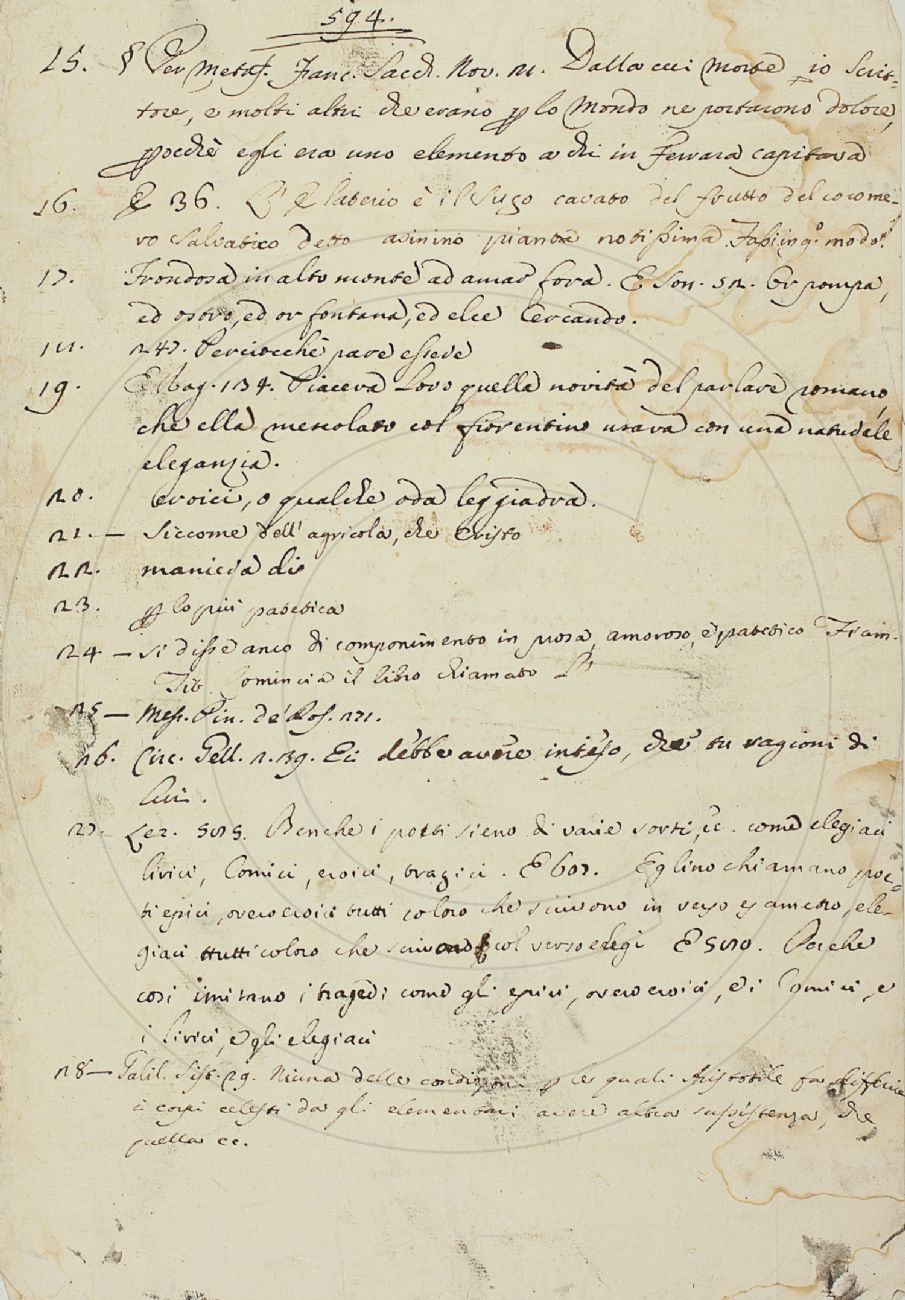 594.
15. § Per metaf. Franc. Sacch. Nov. 21. Dalla cui morte io Scrit-
tore, e molti altri che erano p lo Mondo ne portarono dolore,
pocchè egli era uno elemento a chi in Ferrara capitava
16. E 36. L'Elaterio è il Sugo cavato del frutto del cocome-
ro salvatico detto asinino pianta notissima
17. Frondosa in alto monte ad amar fora. E Son. 52. Or pompa,
ed ostro, ed or fontana, ed elce Cercando.
18. 247. Perciocchè pare essere
19. E Vag. 134. Piaceva Loro quella novità del parlare romano,
che ella mescolato col fiorentino usava con una naturale
eleganzia.
20. eroici, o qualche oda leggiadra.
21. — siccome dell' agricola, che Cristo
22. maniera di
23. p lo più patetica
24 — si disse anco di componimento in prosa, amoroso, e patetico Fiam-
Tit. Comincia il libro chiamato
25 — Mess. Cin. de' Ros. 121.
26. Circ. Gell. 2. 39. Ei debbe avere inteso, che tu ragioni di
lui.
27. Lez. 585. Benche i poeti sieno di varie sorti, cc. come elegiaci
lirici, Comici, eroici, tragici. E 607. Eglino chiamano poe-
ti epici, overo eroici tutti coloro che scrivono in verso esametro, ele-
giaci ttutti coloro che scrivono col verso elegi E 580. Perche
cosi imitano i tragedi come gli epici, overo eroici, e i Comici, e
i lirici, e gli elegiaci
28 — Galil. Sist. 29. Niuna delle condizioni p le quali Aristotile fa differire
i corpi celesti da gli elementari avere altra sussistenza, che
quella ec.